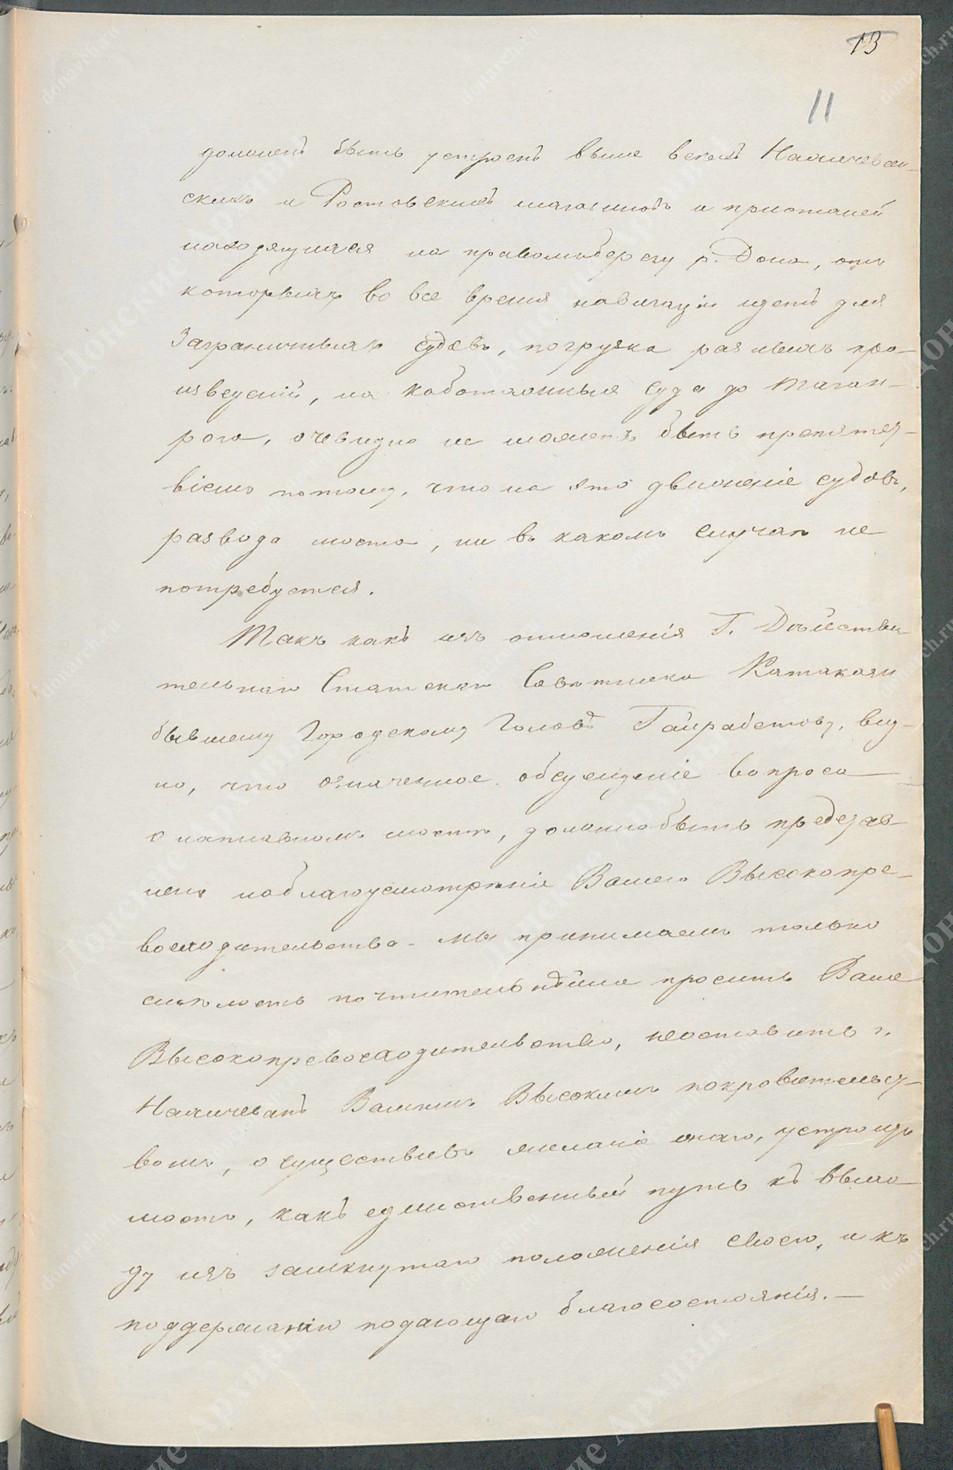 13
11
долженъ быть устроенъ выше всехъ Нахичеван-
скихъ и Ростовскихъ магазиновъ и пристаней
находящихся на правомъ берегу р. Дона, отъ
которыхъ во все время навигаціи идетъ для
Заграничныхъ судовъ, погрузка разныхъ про-
изведеній, на каботажныя суда до Таган-
рога, очевидно не можетъ быть препятст-
віемъ потому, что на это движеніе судовъ,
развода моста, ни въ какомъ случаѣ не
потребуется.
Такъ какъ изъ отношенія Г. Дѣйстви-
тельнаго Статскаго Совѣтника Катакази
бывшему Городскому Головѣ Гайрабетову, вид-
но, что означенное обсужденіе вопроса
о наплавномъ мостѣ, должно быть представ-
лено на благоусмотрѣніе Вашего Высокопре-
восходительства - мы принимаемъ только
смѣлость почтительнѣйше просить Ваше
Высокопревосходительство, не оставить г.
Нахичевань Вашимъ Высокимъ покровительст-
вомъ, осуществивъ желаніе онаго, устроить
мостъ, какъ единственный путь къ выхо-
ду изъ замкнутаго положенія своего, и къ
поддержанію падающаго благосостоянія. —